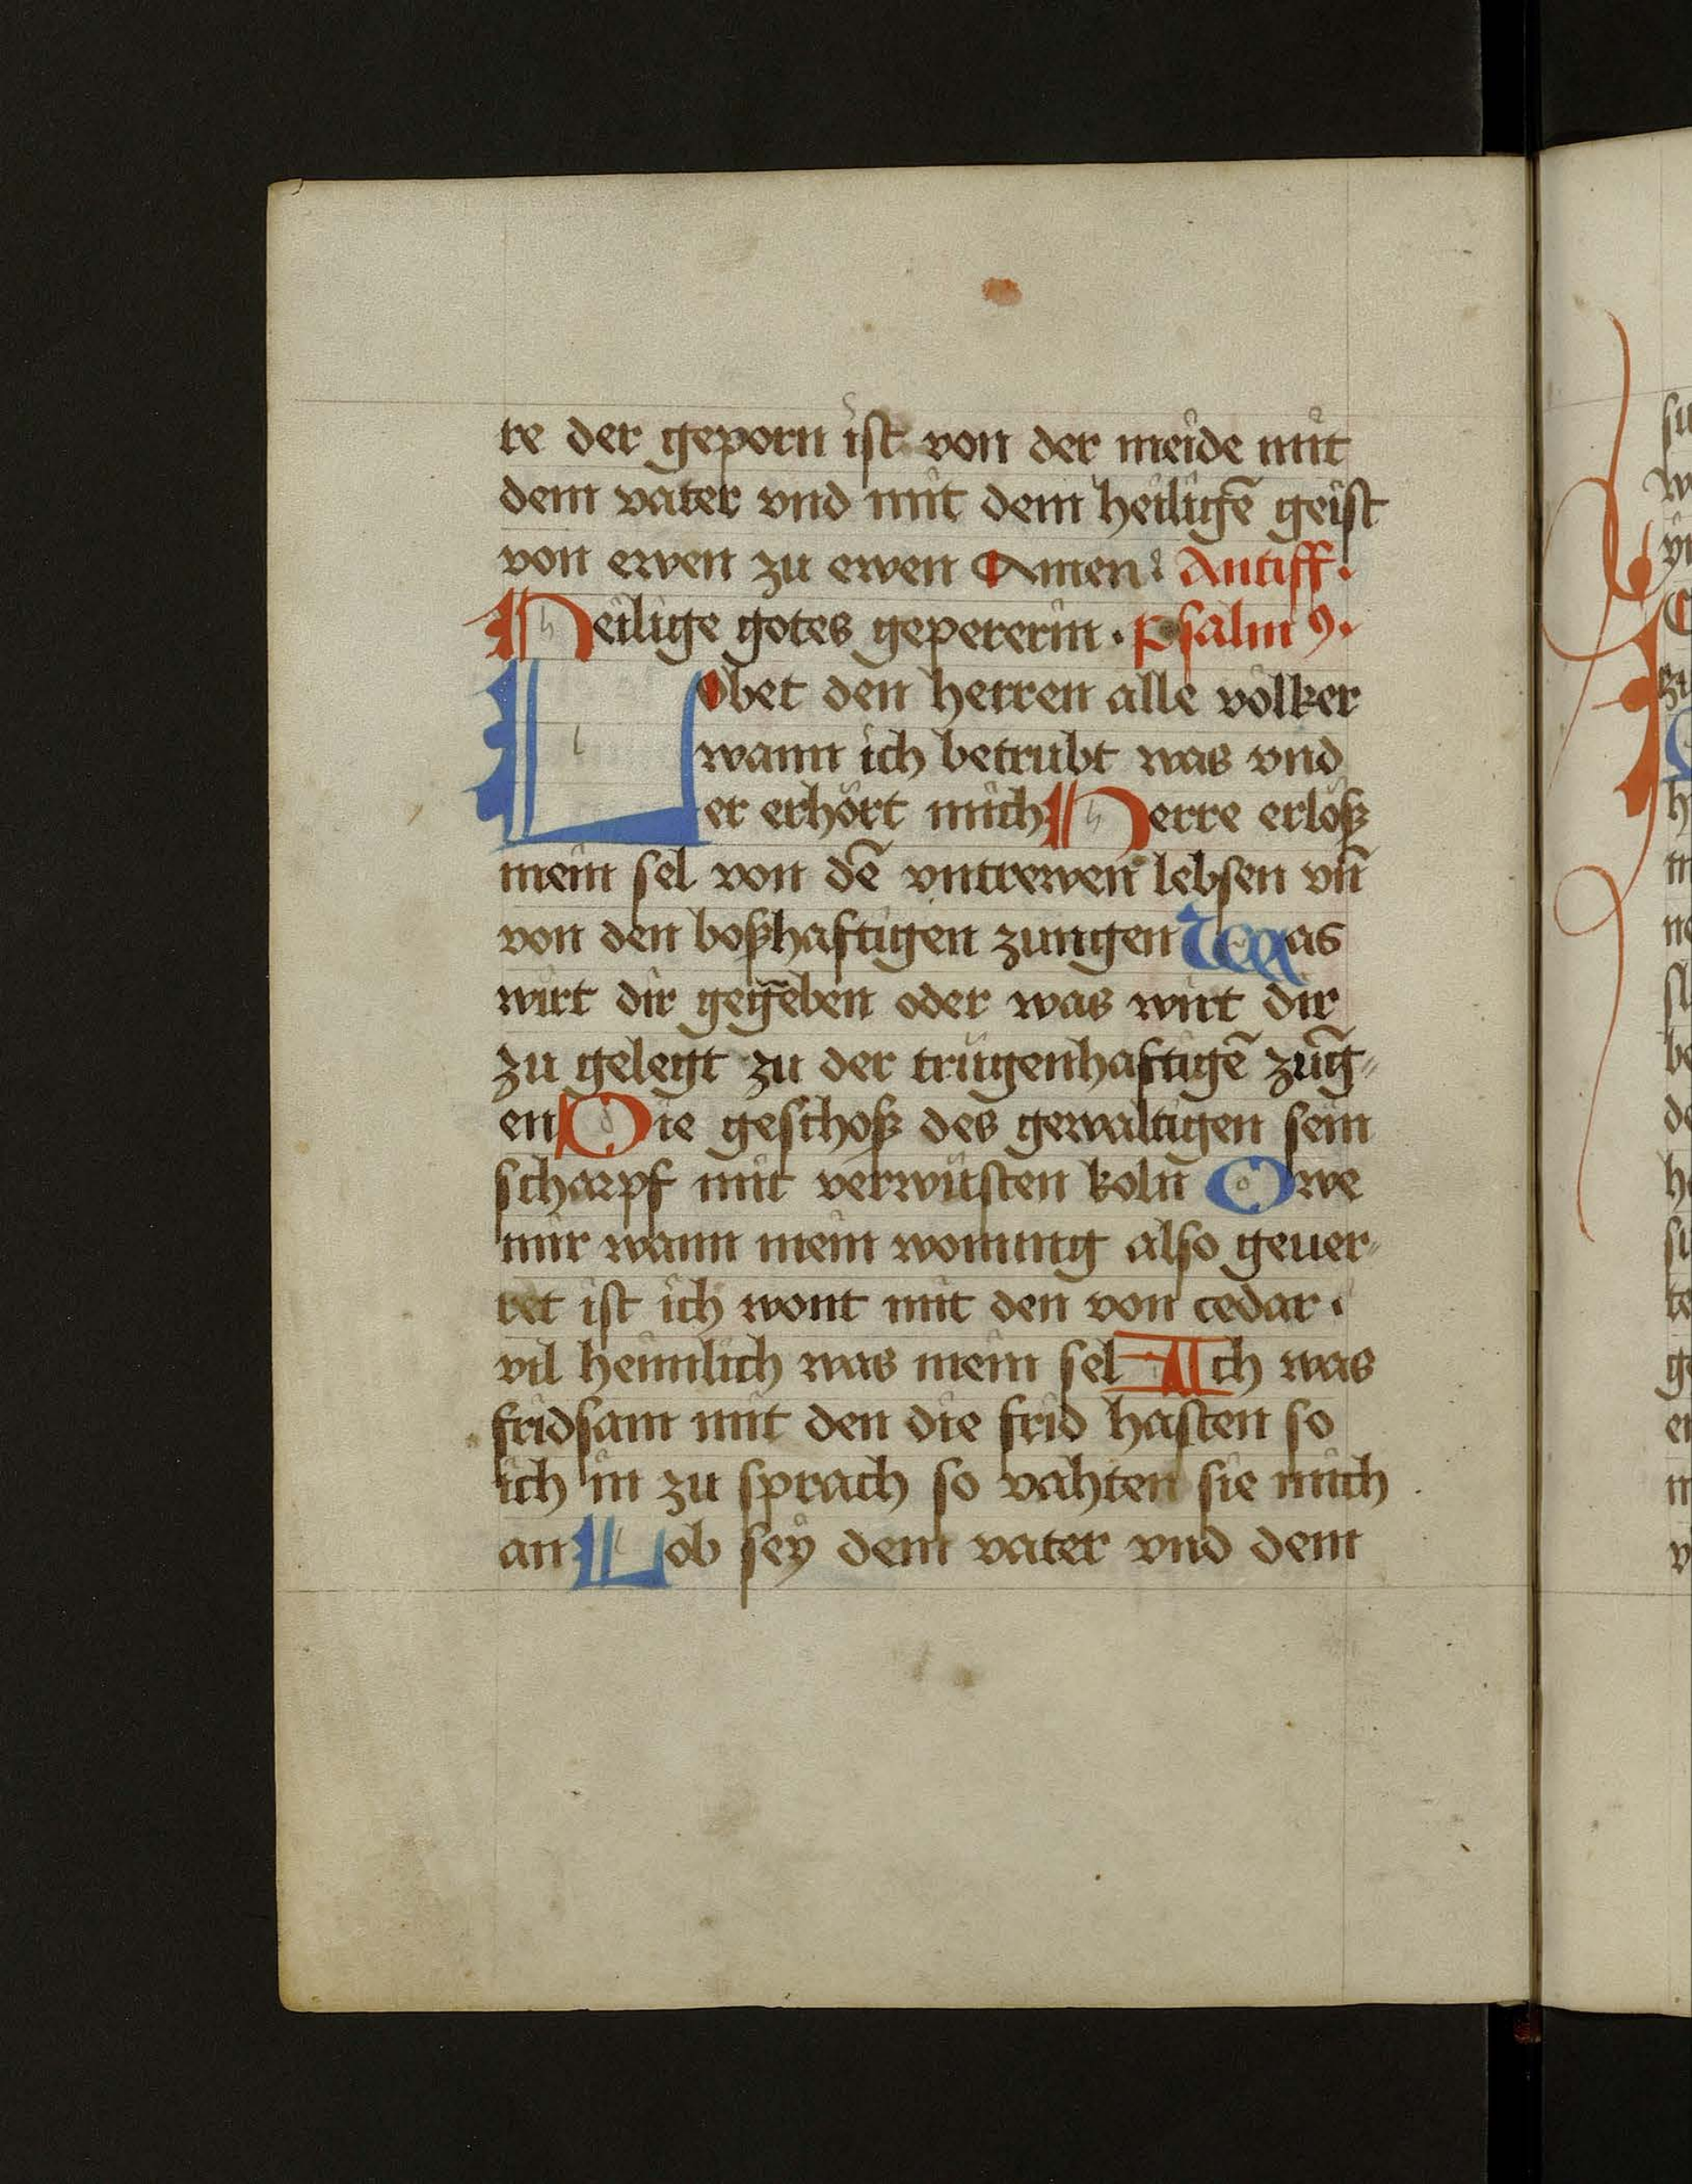 re der geporn ist von der meide mit
dem vater vnd mit dem heiligē geist
von ewen zu ewen Amen Antiff.
Heilige gotes gepererin . Psalm⁹.
LObet den herren alle völker
wann ich betrubt was vnd
er erhört mich Herre erlöß
mein sel von dē vntrewen lebsen vn̄
von den boßhaftigen zungen Was
wirt dir gegeben oder was wirt dir
zu gelegt zu der trügenhaftigē zūg„
en Die geschoß des gewaltigen sein
scharpf mit verwüsten koln Owe
mir wann mein wonung also geuer„
ret ist ich wont mit den von cedar .
vil heimlich was mein sel Ich was
fridsam mit den die frid hasten so
ich in zu sprach so vahten sie mich
an Lob sey dem vater vnd dem